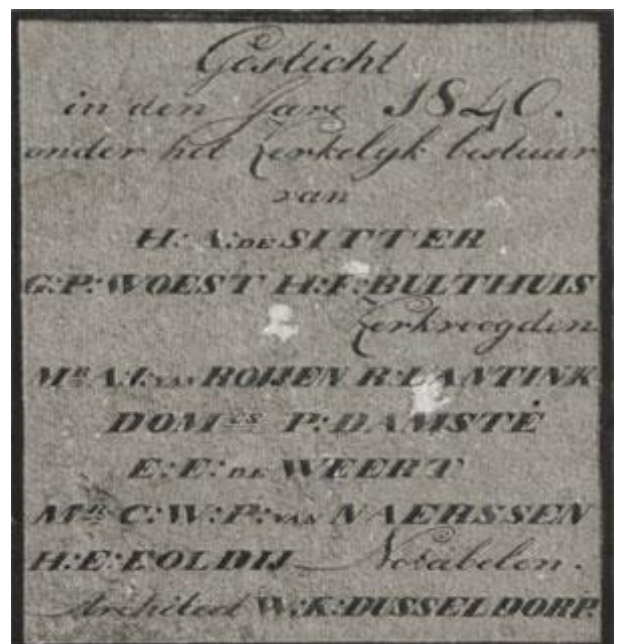 Gesticht
in den Jare 1840.
onder het Kerkelyk bestuur
van
H: A: DE SITTER
G: P: WOEST H: F: BULTHUIS
Kerkvoogden
Mr. A: I: VAN ROIJEN R: LANTINK
DOMcs P: DAMSTÉ
E: E: DE WEERT
Mr. C: W: P: VAN NAERSSEN
H: E: Notabelen.
Architect W: K: DUSSELDORP.